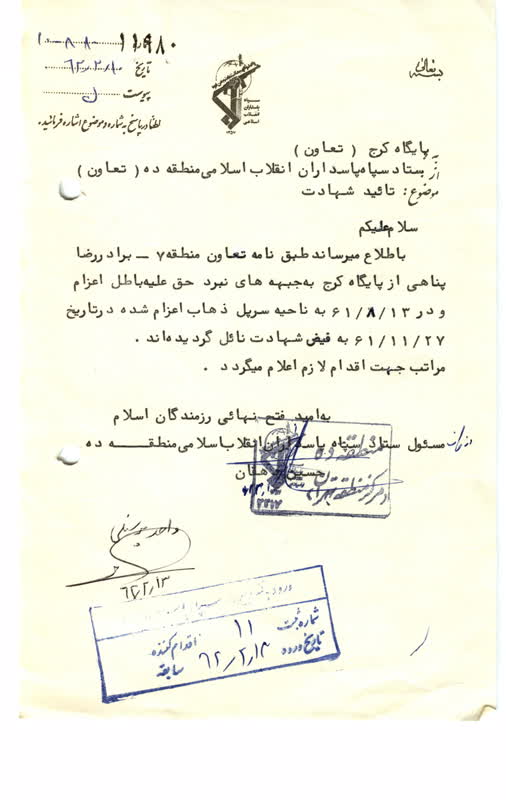 بسمه تعالی
شماره ۱۱۹۸۰
تاریخ ۶۲/۲/۱۰
پیوست
لطفا در پاسخ به شماره و موضوع اشاره فرمائید.
سپاه پاسداران انقلاب اسلامی
به پایگاه کرج ( تعاون )
از: ستاد سپاه پاسداران انقلاب اسلامی منطقه ده ( تعاون )
موضوع: تائید شهادت
سلام علیکم
باطلاع میرساند طبق نامه تعاون منطقه ۷ ــ برادر رضا
پناهی از پایگاه کرج به جبهه های نبرد حق علیه باطل اعزام
و در ۶۱/۸/۱۳ به ناحیه سرپل ذهاب اعزام شده در تاریخ
۶۱/۱۱/۲۷ به فیض شهادت نائل گردیده اند .
مراتب جهت اقدام لازم اعلام میگردد .
به امید فتح نهائی رزمندگان اسلام
مسئول ستاد سپاه پاسداران انقلاب اسلامی منطقـــه ده
حسین دهقان
منطقه ده
واحد
۶۲/۲/۱۳
شماره ثبت ۱۱
تاریخ ورود ۶۲/۲/۱۳
اقدام کننده
سابقه